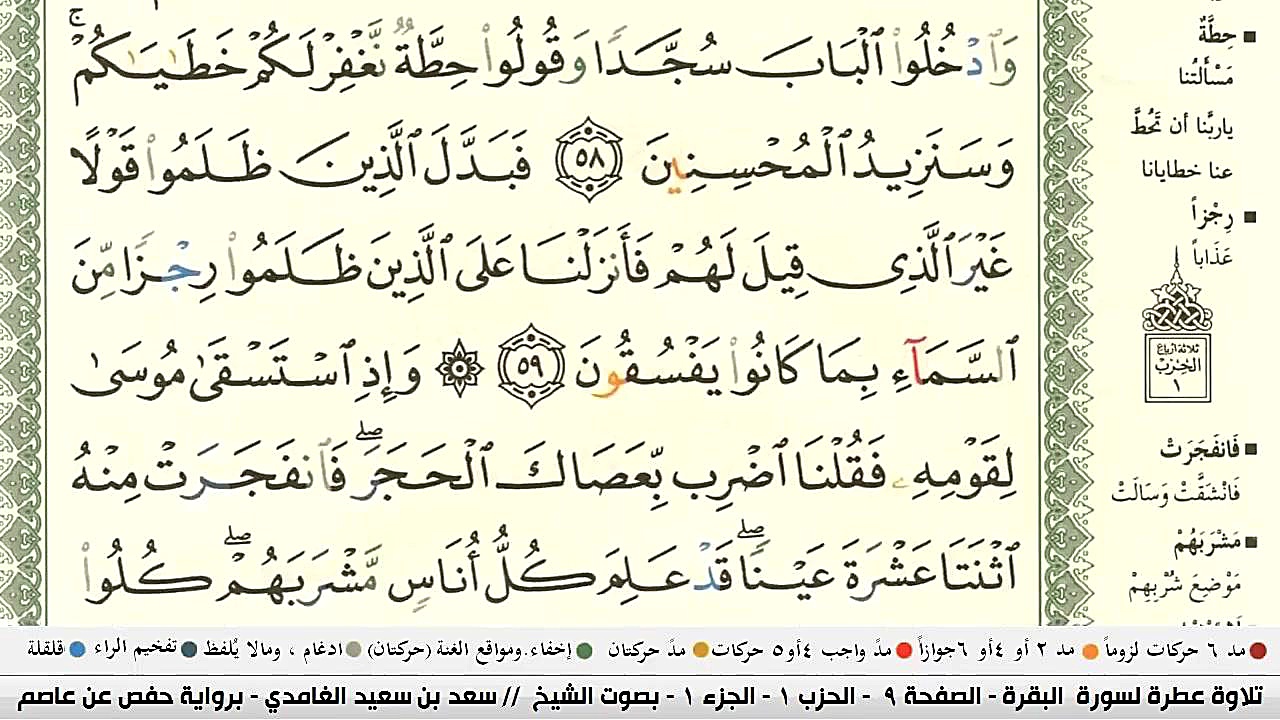 وَٱدۡخُلُوا۟ ٱلۡبَابَ سُجَّدًا وَقُولُوا۟ حِطَّةٌ نَّغۡفِرۡ لَكُمۡ خَطَـٰيَـٰكُمۡۚ
وَسَنَزِيدُ ٱلۡمُحۡسِنِينَ ٥٨ فَبَدَّلَ ٱلَّذِينَ ظَلَمُوا۟ قَوۡلًا
غَيۡرَ ٱلَّذِى قِيلَ لَهُمۡ فَأَنزَلۡنَا عَلَى ٱلَّذِينَ ظَلَمُوا۟ رِجۡزًا مِّنَ
ٱلسَّمَآءِ بِمَا كَانُوا۟ يَفۡسُقُونَ ٥٩ ۞ وَإِذِ ٱسۡتَسۡقَىٰ مُوسَىٰ
لِقَوۡمِهِۦ فَقُلۡنَا ٱضۡرِب بِّعَصَاكَ ٱلۡحَجَرَۖ فَٱنفَجَرَتۡ مِنۡهُ
ٱثۡنَتَا عَشۡرَةَ عَيۡنًاۖ قَدۡ عَلِمَ كُلُّ أُنَاسٍ مَّشۡرَبَهُمۡۖ كُلُوا۟
حِطَّةٌ
مَسْأَلَتُنا
ياربَّنا أن تَحُطَّ
عنا خطايانا
رِجْزاً
عَذَاباً
ثلاثة ارباع
الحزب
١
فَانفَجَرَتْ
فَانْشَقَّتْ وَسَالَتْ
مَشْرَبَهُمْ
مَوْضِعَ شُرْبِهِمْ
مد ٦ حركات لزوماً مد ٢ أو ٤ أو ٦ جوازاً مدّ واجب ٤ أو ٥ حركات مدّ حركتان إخفاء.ومواقع الغنة (حركتان) ادغام ، ومالا يُلفظ تفخيم الراء قلقلة
تلاوة عطرة لسورة البقرة - الصفحة ٩ - الحزب ١ - الجزء ١ - بصوت الشيخ // سعد بن سعيد الغامدي - برواية حفص عن عاصم